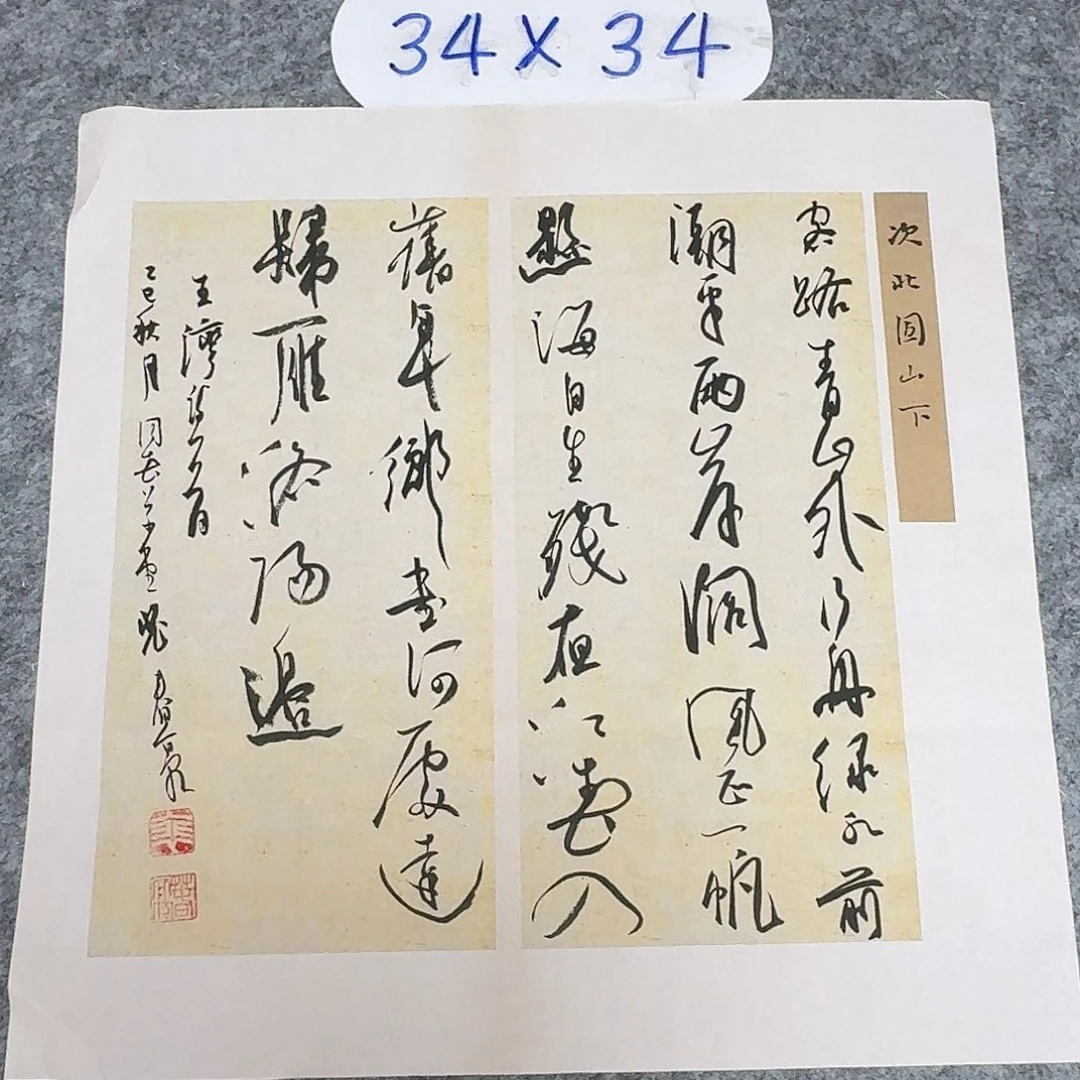 34 X 34
次北固山下
客路青山外行舟緑水前
潮平兩岸闊風正一帆
懸海日生殘夜江春入
舊年鄉書何處達
歸雁洛陽邊
王灣詩一首
乙巳秋月